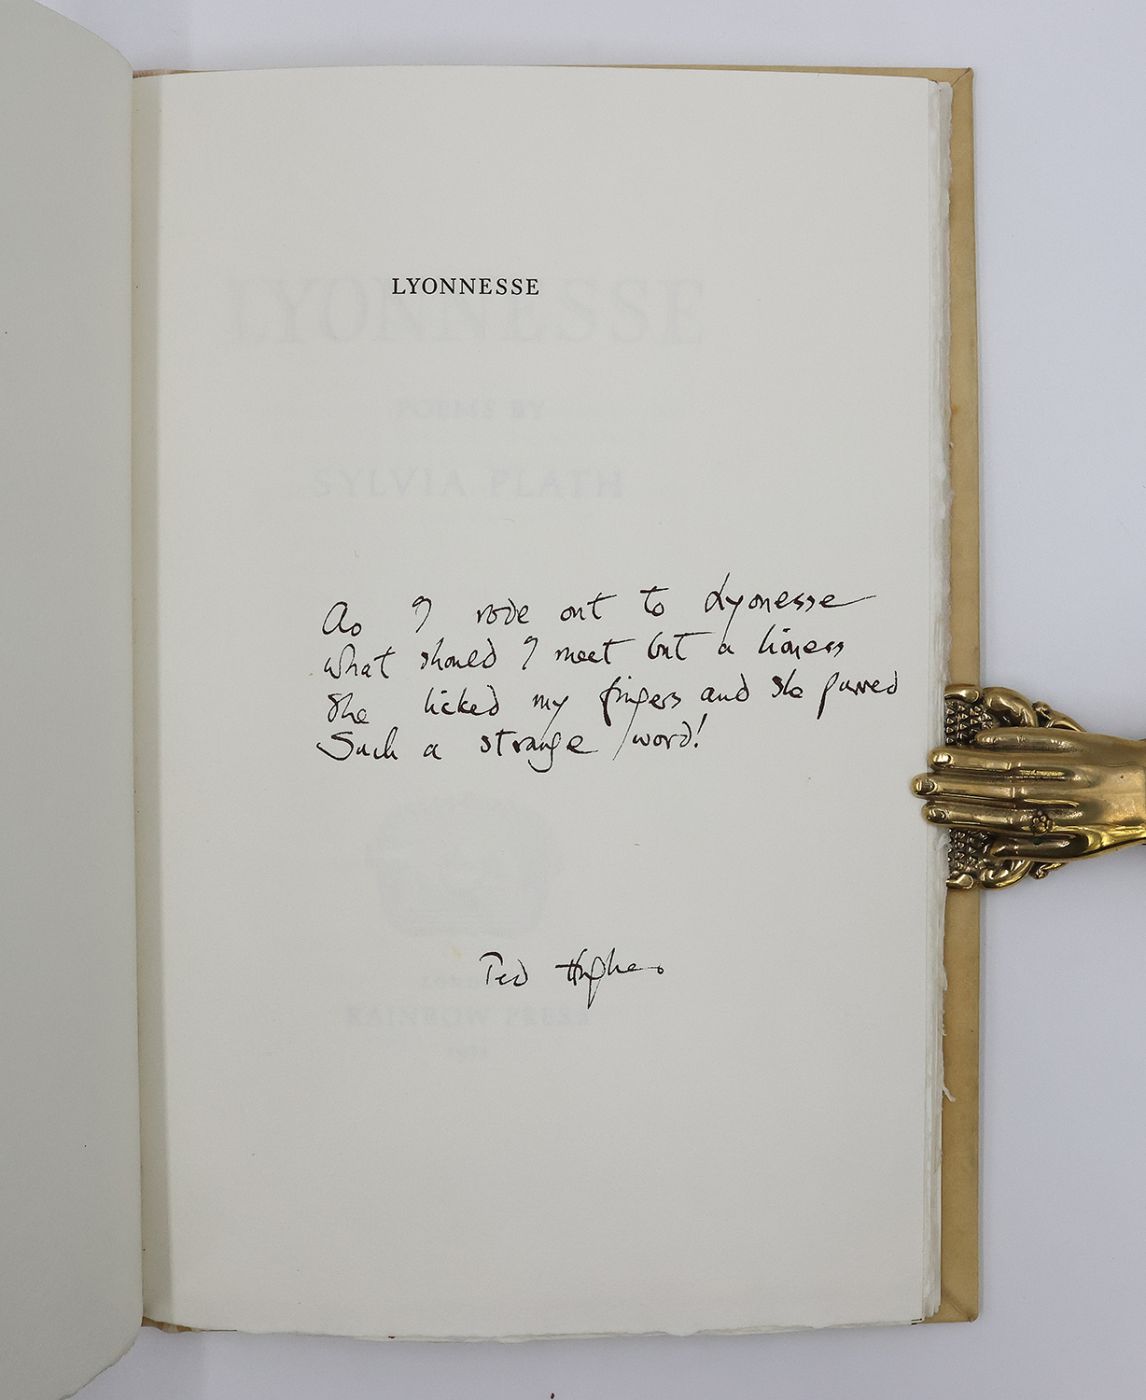 LYONNESSE
LYONNESSE
POEMS BY
SYLVIA PLATH
As I rode out to Lyonesse
what should I meet but a lioness
She licked my fingers and she purred
Such a strange word!
Ted Hughes
RAINBOW PRESS